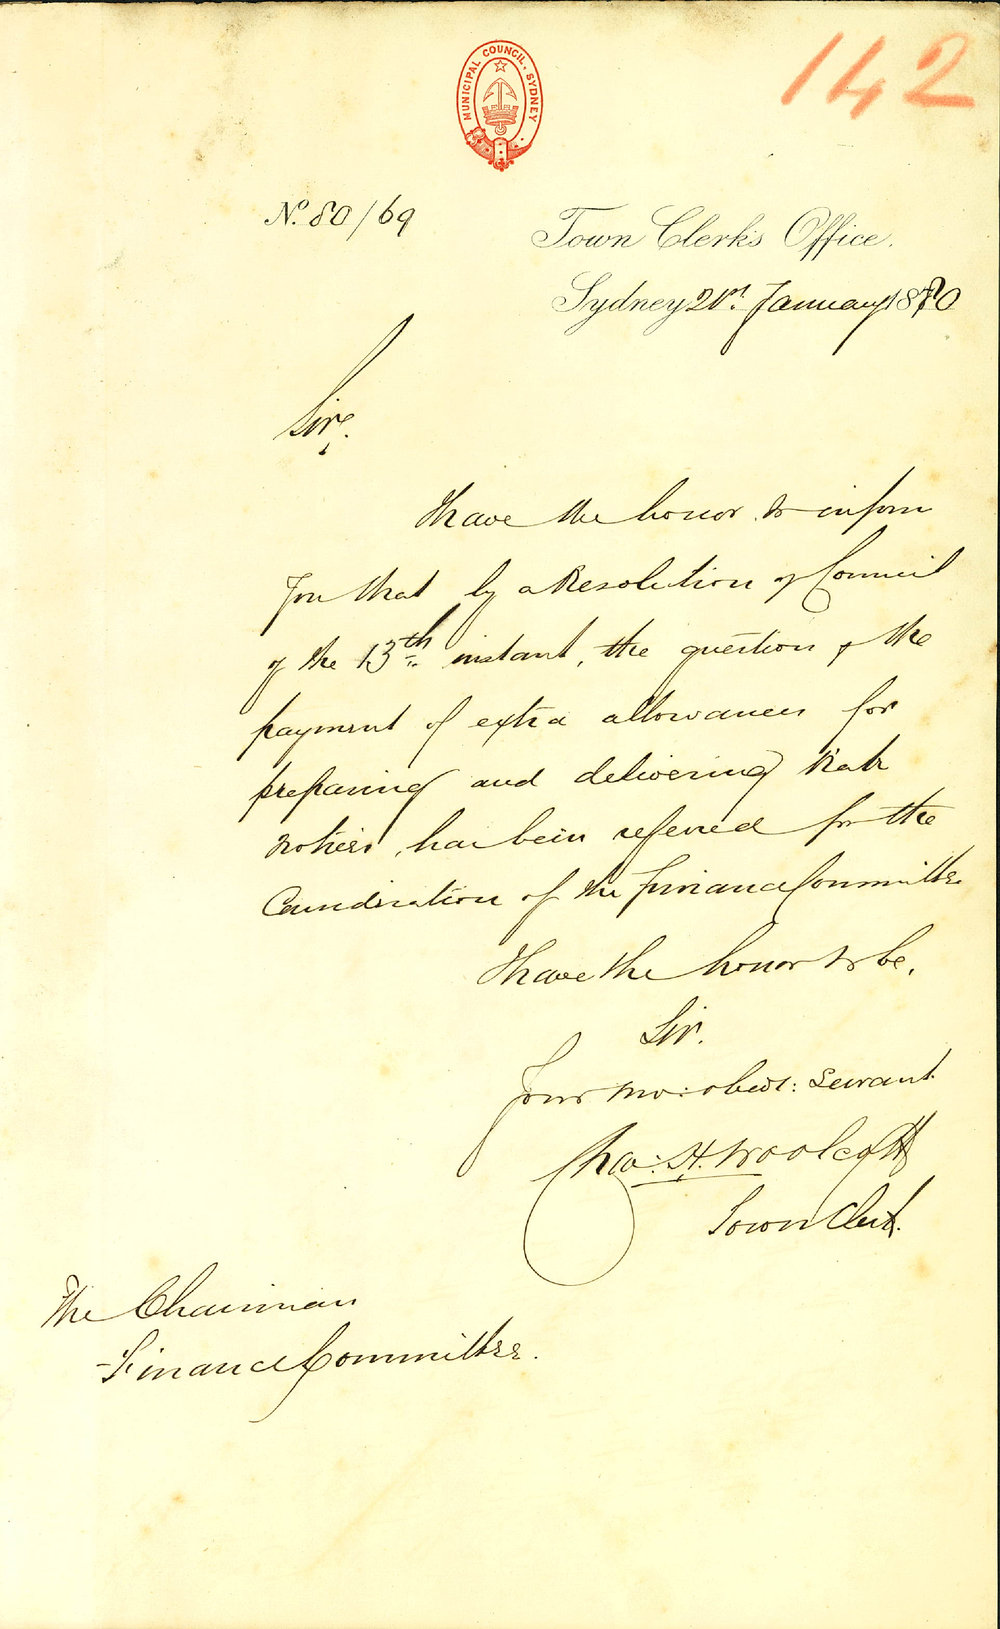 142
MUNICIPAL COUNCIL. SYDNEY
No. 80/69
Town Clerk's Office.
Sydney 21st January 1870
Sir,
I have the honor to inform
you that by a Resolution of Council
of the 13th instant, the question of the
payment of extra allowances for
preparing and delivering Rate
notices, has been referred for the
Consideration of the Finance Committee
I have the honor to be,
Sir.
Your mo: obedt: Servant
Chas: H. Woolcott
Town Clerk.
The Chairman
Finance Committee.